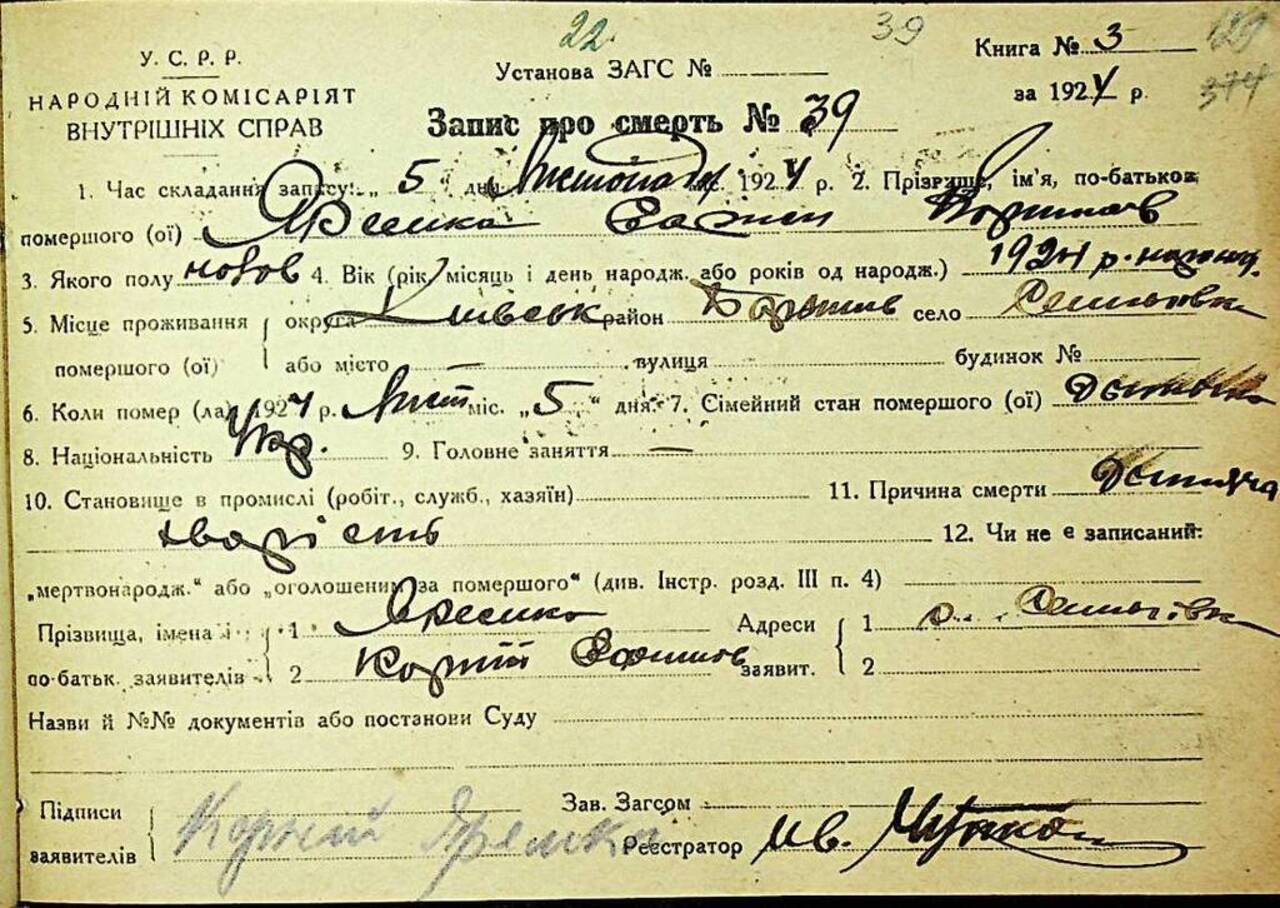 22. 39 129
У. С. Р. Р. Установа ЗАГС № Книга № 3
НАРОДНІЙ КОМІСАРІЯТ за 1924 р. 374
ВНУТРІШНІХ СПРАВ Запис про смерть № 39
1. Час складання запису: „ 5 “ дня Листопада 1924 р. 2. Прізвище, ім'я, по-батькові
помершого (ої) Яремка
3. Якого полу 4. Вік (рік, місяць і день народж. або років од народж.) 1924 р.
5. Місце проживання округа Київськ район село
помершого (ої) або місто — вулиця будинок №
6. Коли помер (ла) 1924 р. Лист міс. „ 5 “ дня. 7. Сімейний стан помершого (ої)
8. Національність Укр. 9. Головне заняття —
10. Становище в промислі (робіт., служб., хазяїн) 11. Причина смерти Дитяча
хварість 12. Чи не є записаний:
„мертвонародж.“ або „оголошеним за помершого“ (див. Інстр. розд. III п. 4)
Прізвища, імена і 1 Яремко Адреси 1
по-батьк. заявителів 2 Корній заявит. 2
Назви й №№ документів або постанови Суду
Підписи Зав. Загсом
заявителів Корній Яремка Реєстратор Ив.